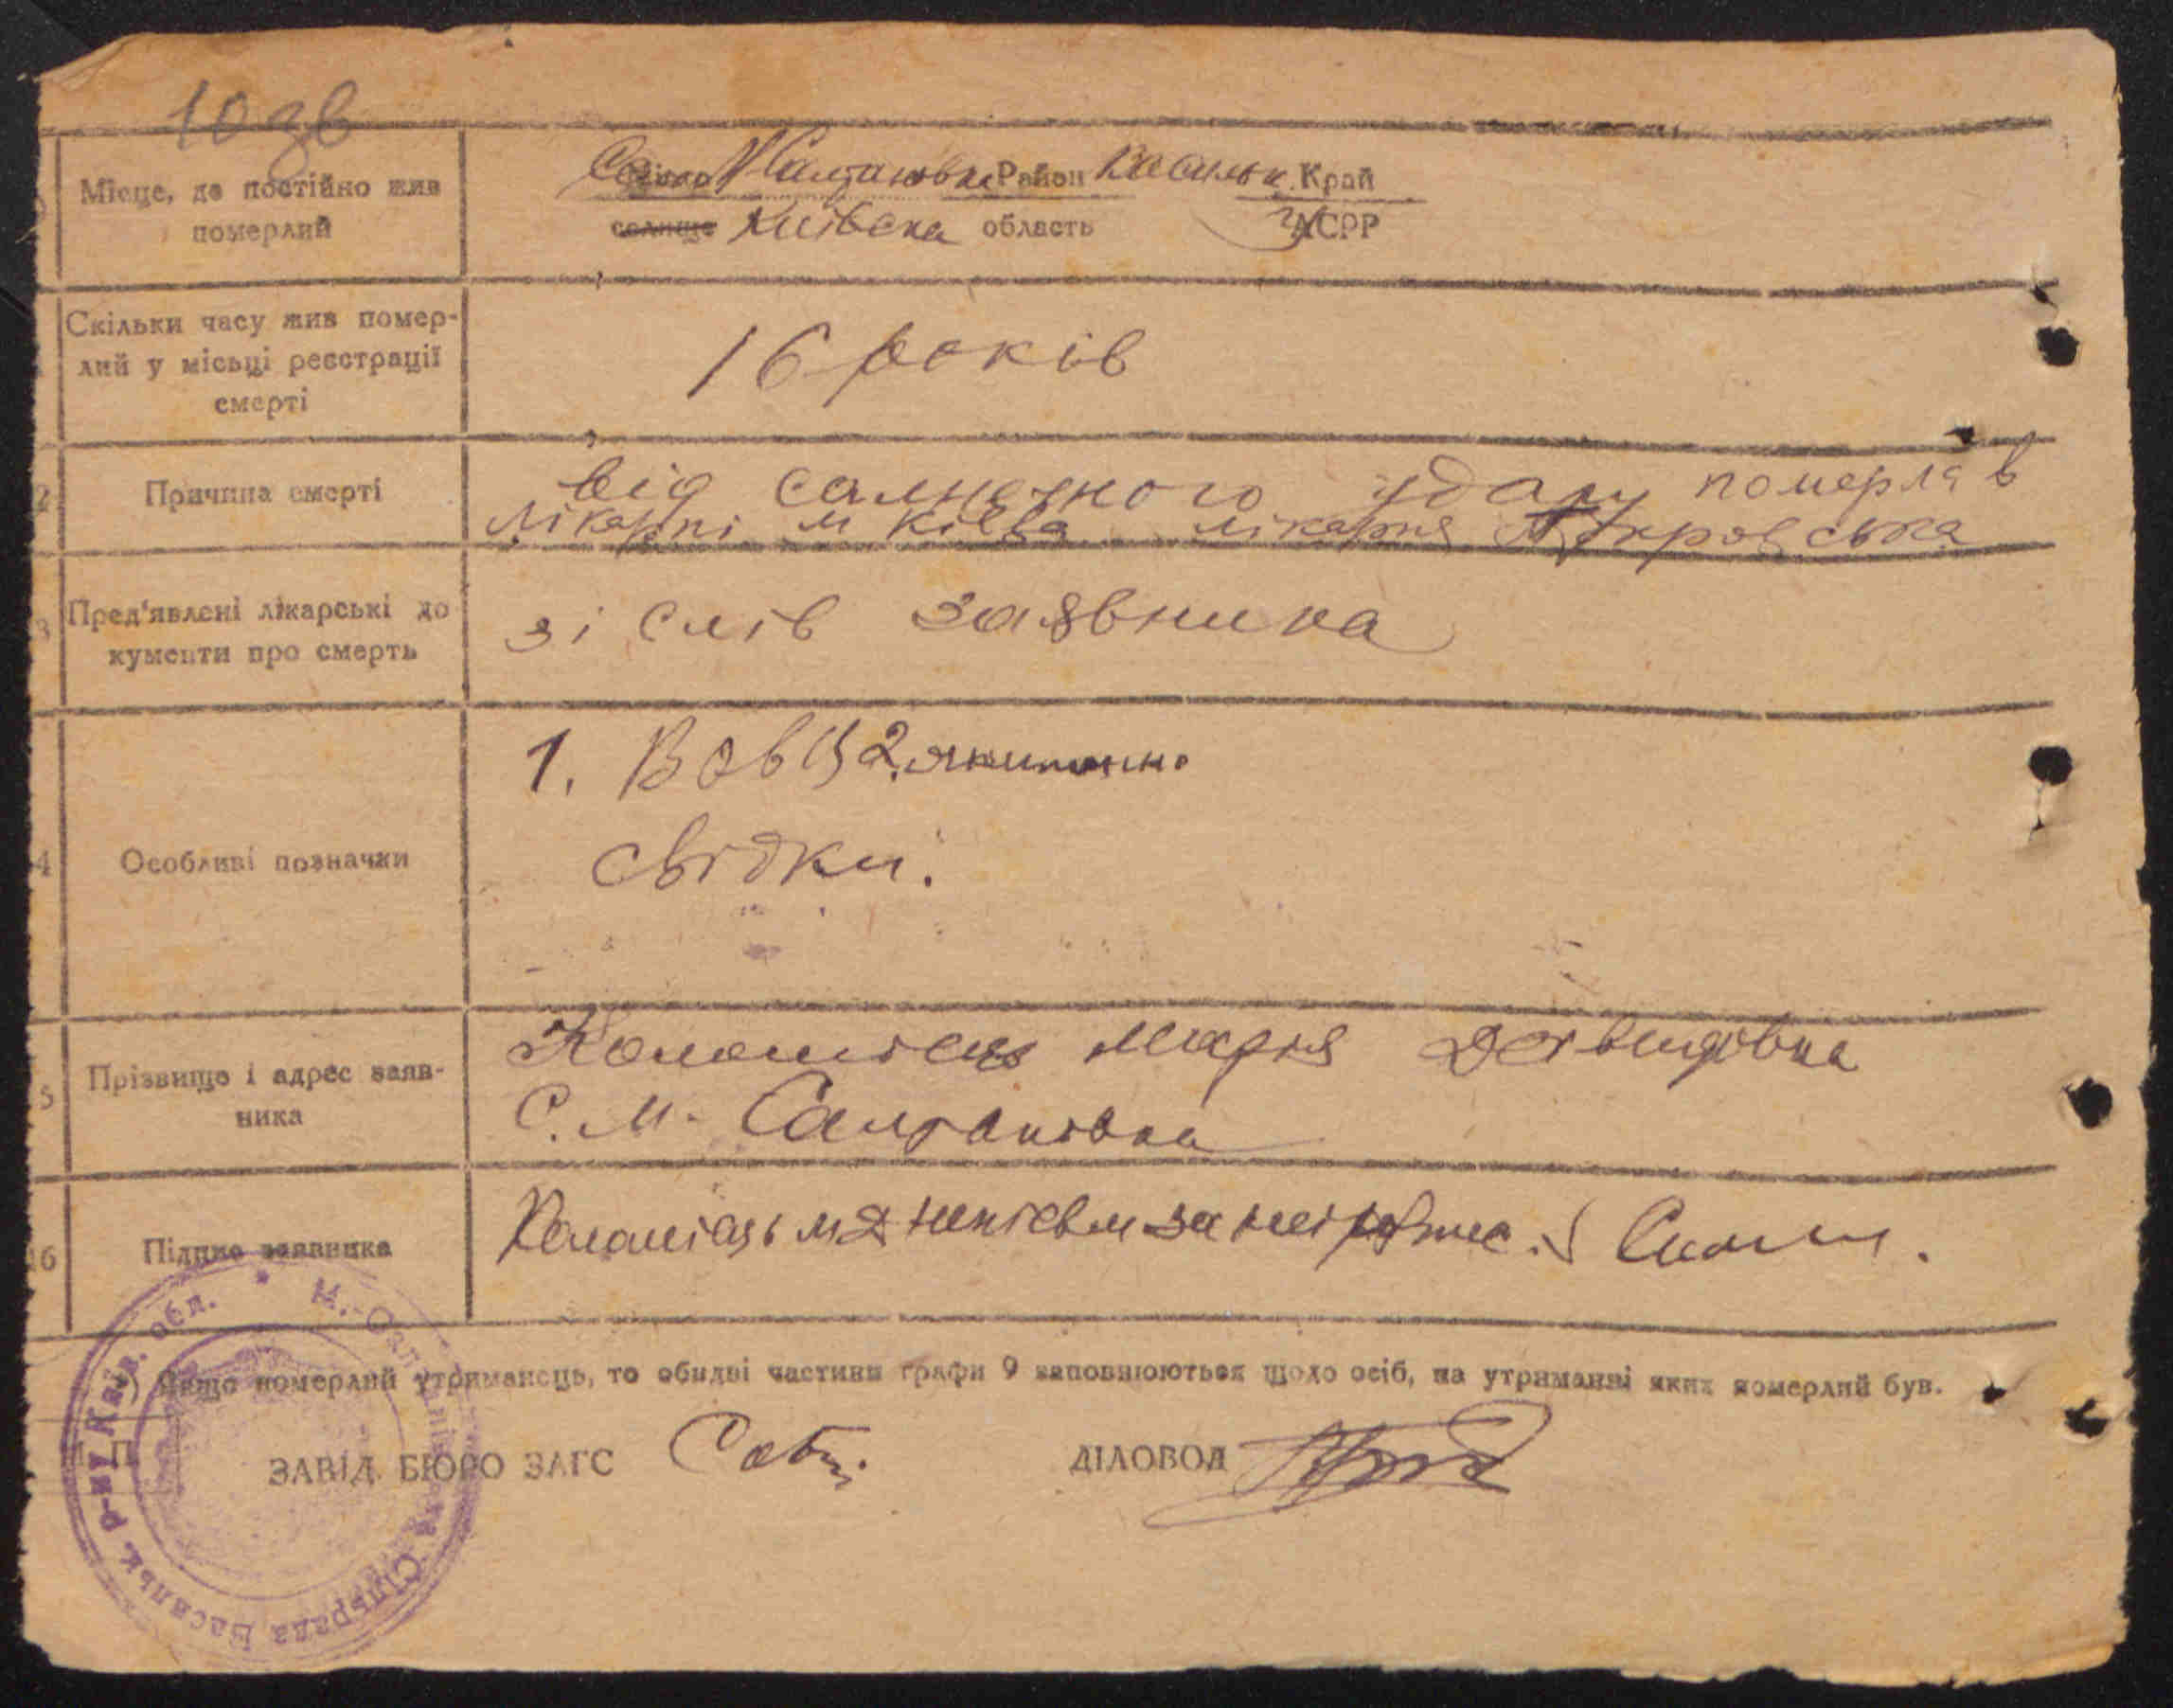 10 дв
Місце, де постійно жив
померлий
Село М Салтановка Район Васильк. Край
селище Київска область АСРР
Скільки часу жив помер-
лий у місьці реєстрації
смерті
16 років
2 Причина смерті
від салнечного удару померла в
лікарні м Київа лікарня
3 Пред'явлені лікарські до
кументи про смерть
зі слів заявника
4 Особливі позначки
1. Вовц 2.
свідки:
5 Прізвище і адрес заяв-
ника
Коломієць Марія Давидовна
С. М. Салтановка
16 Підпис заявника
Коломієць М Д
Якщо померлий утриманець, то обидві частини графи 9 заповнюються щодо осіб, на утриманні яких померлий був.
М П
ЗАВІД. БЮРО ЗАГС
ДІЛОВОД
М.-Салтанівська Сільрада Васильк. р-ну Київ. обл.